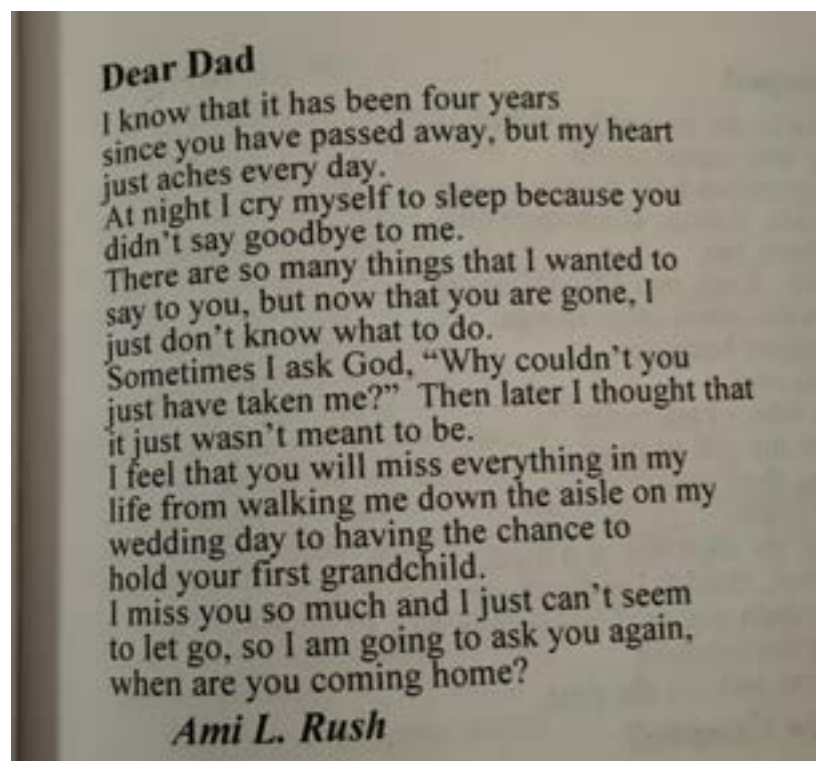 Dear Dad
I know that it has been four years
since you have passed away, but my heart
just aches every day.
At night I cry myself to sleep because you
didn't say goodbye to me.
There are so many things that I wanted to
say to you, but now that you are gone, I
just don't know what to do.
Sometimes I ask God, “Why couldn't you
just have taken me?” Then later I thought that
it just wasn't meant to be.
I feel that you will miss everything in my
life from walking me down the aisle on my
wedding day to having the chance to
hold your first grandchild.
I miss you so much and I just can't seem
to let go, so I am going to ask you again,
when are you coming home?
Ami L. Rush